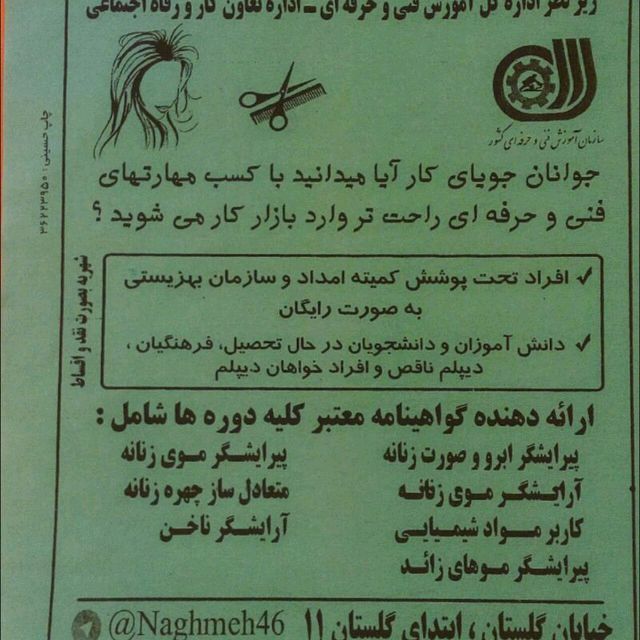 زیر نظر اداره کل آموزش فنی و حرفه ای _ اداره تعاون کار و رفاه اجتماعی
سازمان آموزش فنی و حرفه ای کشور
جوانان جویای کار آیا میدانید با کسب مهارتهای
فنی و حرفه ای راحت تر وارد بازار کار می شوید ؟
✓ افراد تحت پوشش کمیته امداد و سازمان بهزیستی
به صورت رایگان
✓ دانش آموزان و دانشجویان در حال تحصیل، فرهنگیان ،
دیپلم ناقص و افراد خواهان دیپلم
شهریه بصورت نقد و اقساط
چاپ حسینی :
ارائه دهنده گواهینامه معتبر کلیه دوره ها شامل :
پیرایشگر ابرو و صورت زنانه
پیرایشگر موی زنانه
آرایشگر موی زنانه
متعادل ساز چهره زنانه
کاربر مواد شیمیایی
آرایشگر ناخن
پیرایشگر موهای زائد
خیابان گلستان ، ابتدای گلستان ۱۱
@Naghmeh46